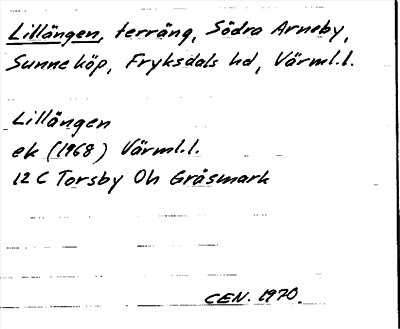 Lillängen, terräng, Södra Arneby,
Sunne köp, Fryksdals hd, Värml.l.
Lillängen
ek (1968) Värml.l.
12 C Torsby Oh Gräsmark
CEN. 1970.